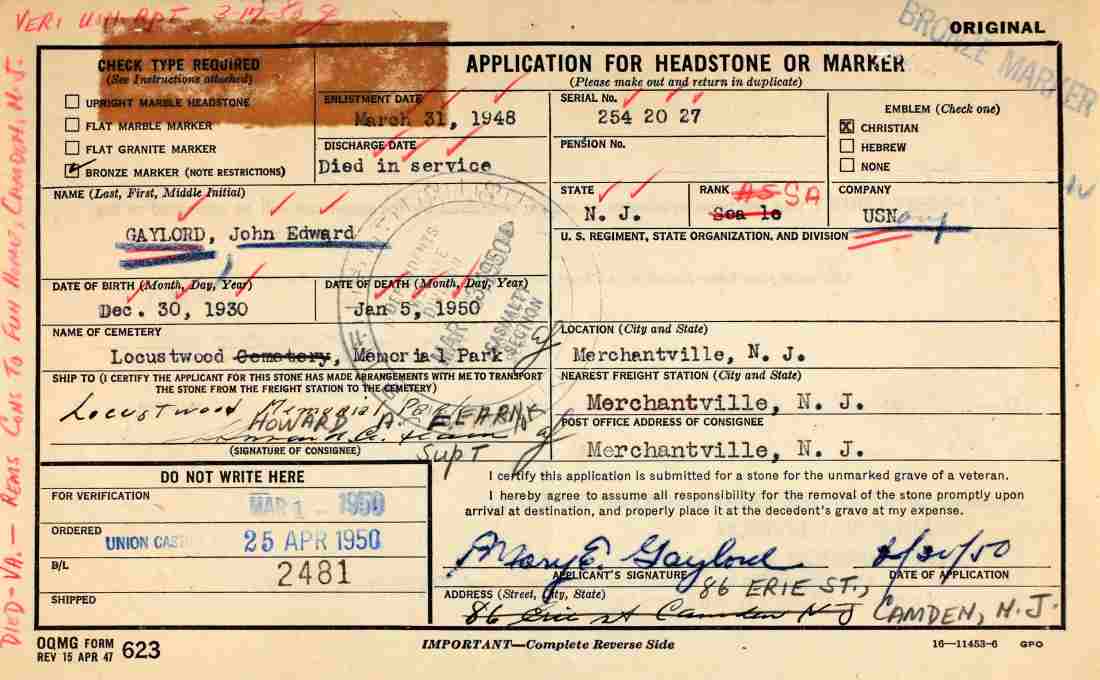 VERI USN RPT 3-17-50
ORIGINAL
BRONZE MARKER
CHECK TYPE REQUIRED
(See Instructions attached)
UPRIGHT MARBLE HEADSTONE
FLAT MARBLE MARKER
FLAT GRANITE MARKER
BRONZE MARKER (NOTE RESTRICTIONS)
APPLICATION FOR HEADSTONE OR MARKER
(Please make out and return in duplicate)
ENLISTMENT DATE
March 31, 1948
DISCHARGE DATE
Died in service
SERIAL No.
254 20 27
PENSION No.
EMBLEM (Check one)
X CHRISTIAN
HEBREW
NONE
NAME (Last, First, Middle Initial)
GAYLORD, John Edward
STATE
N. J.
RANK AS SA
Sea 1c
COMPANY
USN
U. S. REGIMENT, STATE ORGANIZATION, AND DIVISION
DATE OF BIRTH (Month, Day, Year)
Dec. 30, 1930
DATE OF DEATH (Month, Day, Year)
Jan 5, 1950
CASUALTY SECTION
NAME OF CEMETERY
Locustwood Cemetery, Memorial Park
LOCATION (City and State)
Merchantville, N. J.
SHIP TO (I CERTIFY THE APPLICANT FOR THIS STONE HAS MADE ARRANGEMENTS WITH ME TO TRANSPORT
THE STONE FROM THE FREIGHT STATION TO THE CEMETERY)
Locustwood Memorial Park
HOWARD A. FEARN
(SIGNATURE OF CONSIGNEE)
SUPT
NEAREST FREIGHT STATION (City and State)
Merchantville, N. J.
POST OFFICE ADDRESS OF CONSIGNEE
Merchantville, N. J.
DO NOT WRITE HERE
FOR VERIFICATION
MAR 1 - 1950
ORDERED
UNION CAST
25 APR 1950
B/L
2481
SHIPPED
I certify this application is submitted for a stone for the unmarked grave of a veteran.
I hereby agree to assume all responsibility for the removal of the stone promptly upon
arrival at destination, and properly place it at the decedent's grave at my expense.
Mary E. Gaylord
APPLICANT'S SIGNATURE
DATE OF APPLICATION
86 ERIE ST.,
ADDRESS (Street, City, State)
86 Erie St Camden N J CAMDEN, N. J.
DIED - VA. - REMS CONS TO FUN HOME, CAMDEN, N. J.
OQMG FORM
REV 15 APR 47 623
IMPORTANT—Complete Reverse Side
16—11453-6 GPO